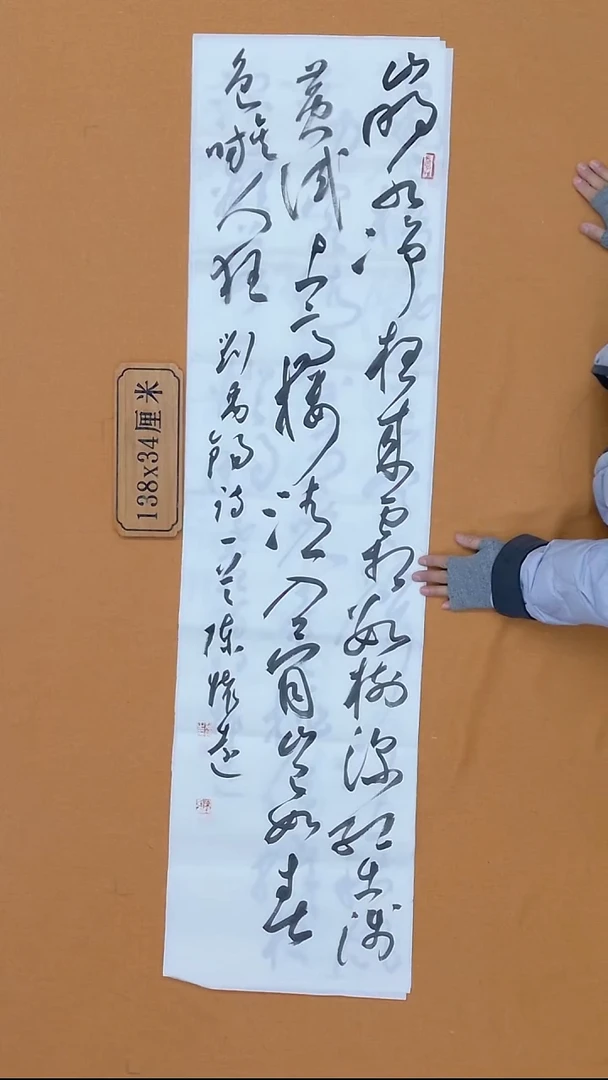 山明水净夜来霜数树深红出浅
黄试上高楼清入骨岂如春
色嗾人狂 刘禹锡诗一首 陈
138x34厘米